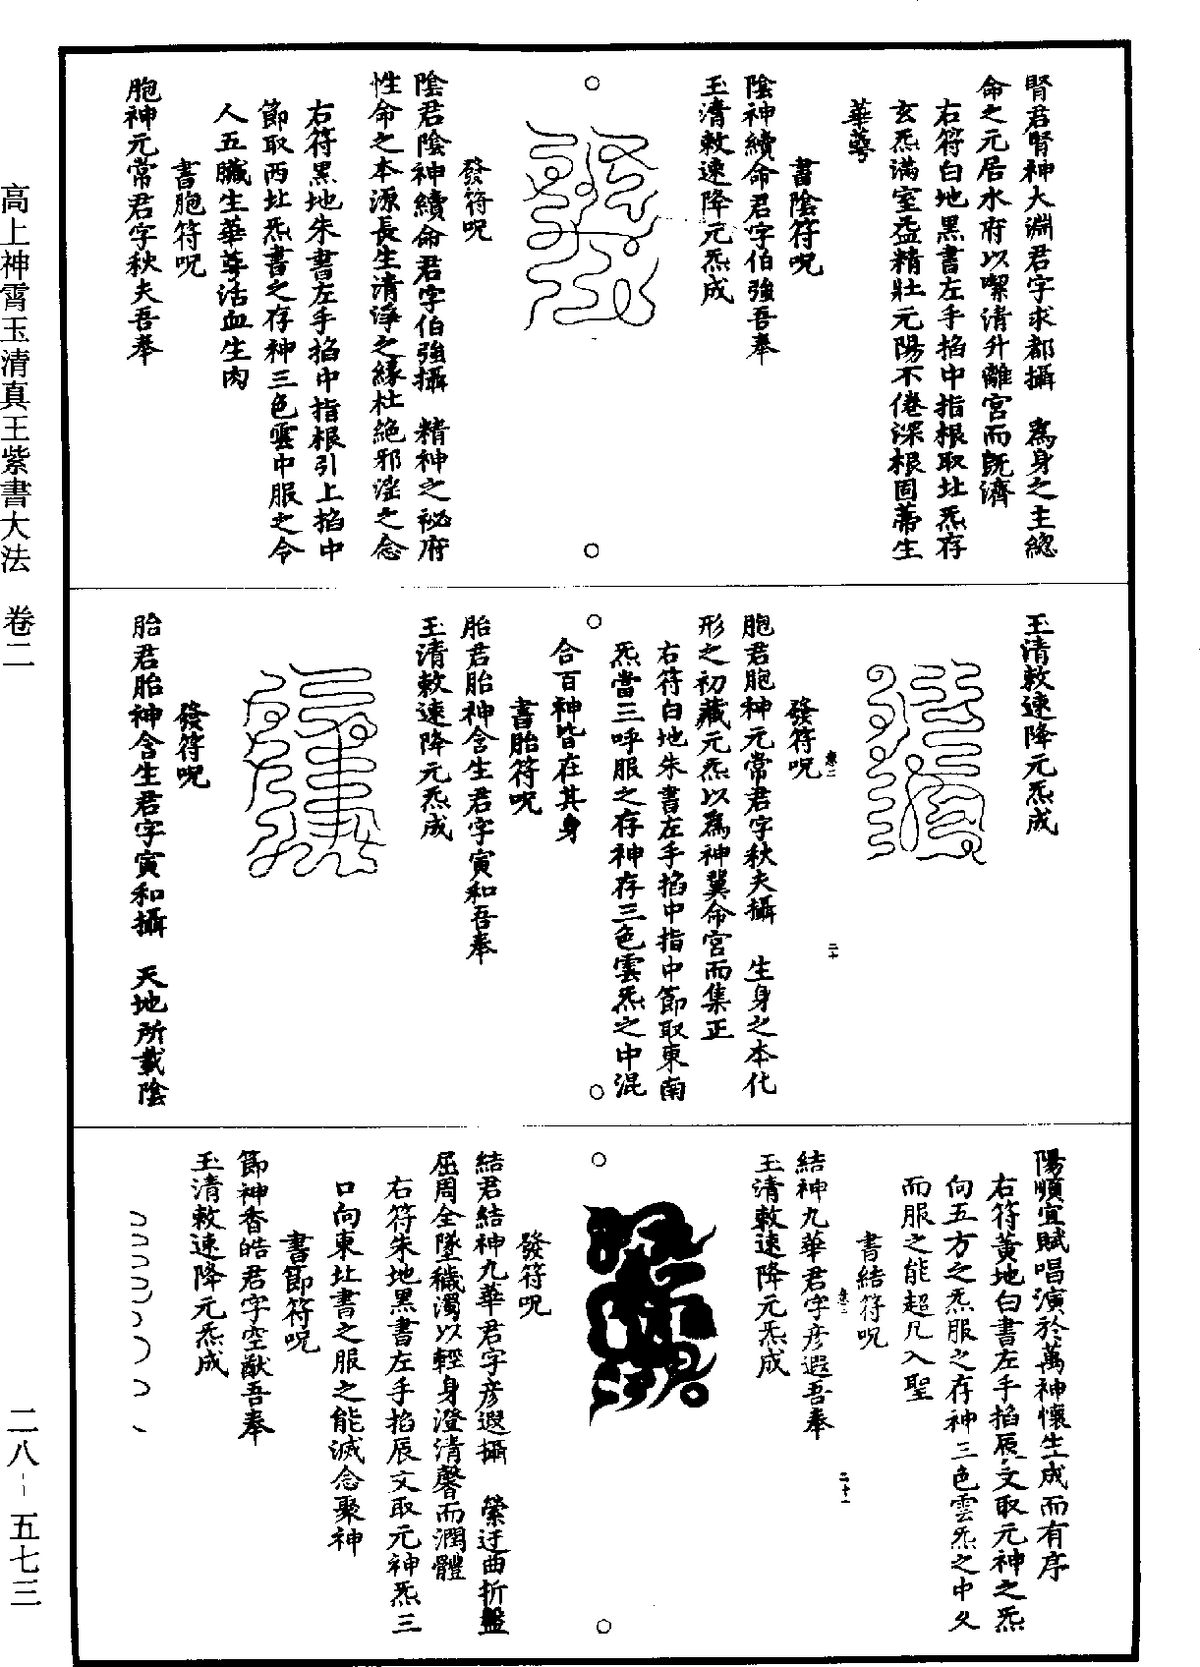 腎君腎神大淵君字求都攝　為身之主總
命之元居水府以潔清升離宮而既濟
右符白地黑書左手掐中指根取北炁存
玄炁滿室益精壯元陽不倦深根固蔕生
華蕚
書陰符呪
陰神續命君字伯強吾奉
玉清敕速降元炁成
發符呪
陰君陰神續命君字伯強攝　精神之祕府
性命之本源長生清淨之緣杜絕邪淫之念
右符黑地朱書左手掐中指根引上掐中
節取西北炁書之存神三色雲中服之令
人五臟生華蕚活血生肉
書胞符呪
胞神元常君字秋夫吾奉
玉清敕速降元炁成
卷二
二十
發符呪
胞君胞神元常君字秋夫攝　生身之本化
形之初藏元炁以為神冀命宮而集正
右符白地朱書左手掐中指中節取東南
炁當三呼服之存神存三色雲炁之中混
合百神皆在其身
書胎符呪
胎君胎神含生君字寅和吾奉
玉清敕速降元炁成
發符呪
胎君胎神含生君字寅和攝　天地所載陰
陽順宜賦唱演於萬神懷生成而有序
右符黃地白書左手掐辰文取元神之炁
向五方之炁服之存神三色雲炁之中久
而服之能超凡入聖
書結符呪
卷二
二十一
結神九華君字彦遐吾奉
玉清敕速降元炁成
發符呪
結君結神九華君字彦遐攝　縈迂曲折盤
屈周全墜穢濁以輕身澄清馨而潤體
右符朱地黑書左手掐辰文取元神炁三
口向東北書之服之能滅念聚神
書節符呪
節神香皓君字空猷吾奉
玉清敕速降元炁成
高上神霄玉清真王紫書大法　卷二
二八－五七三